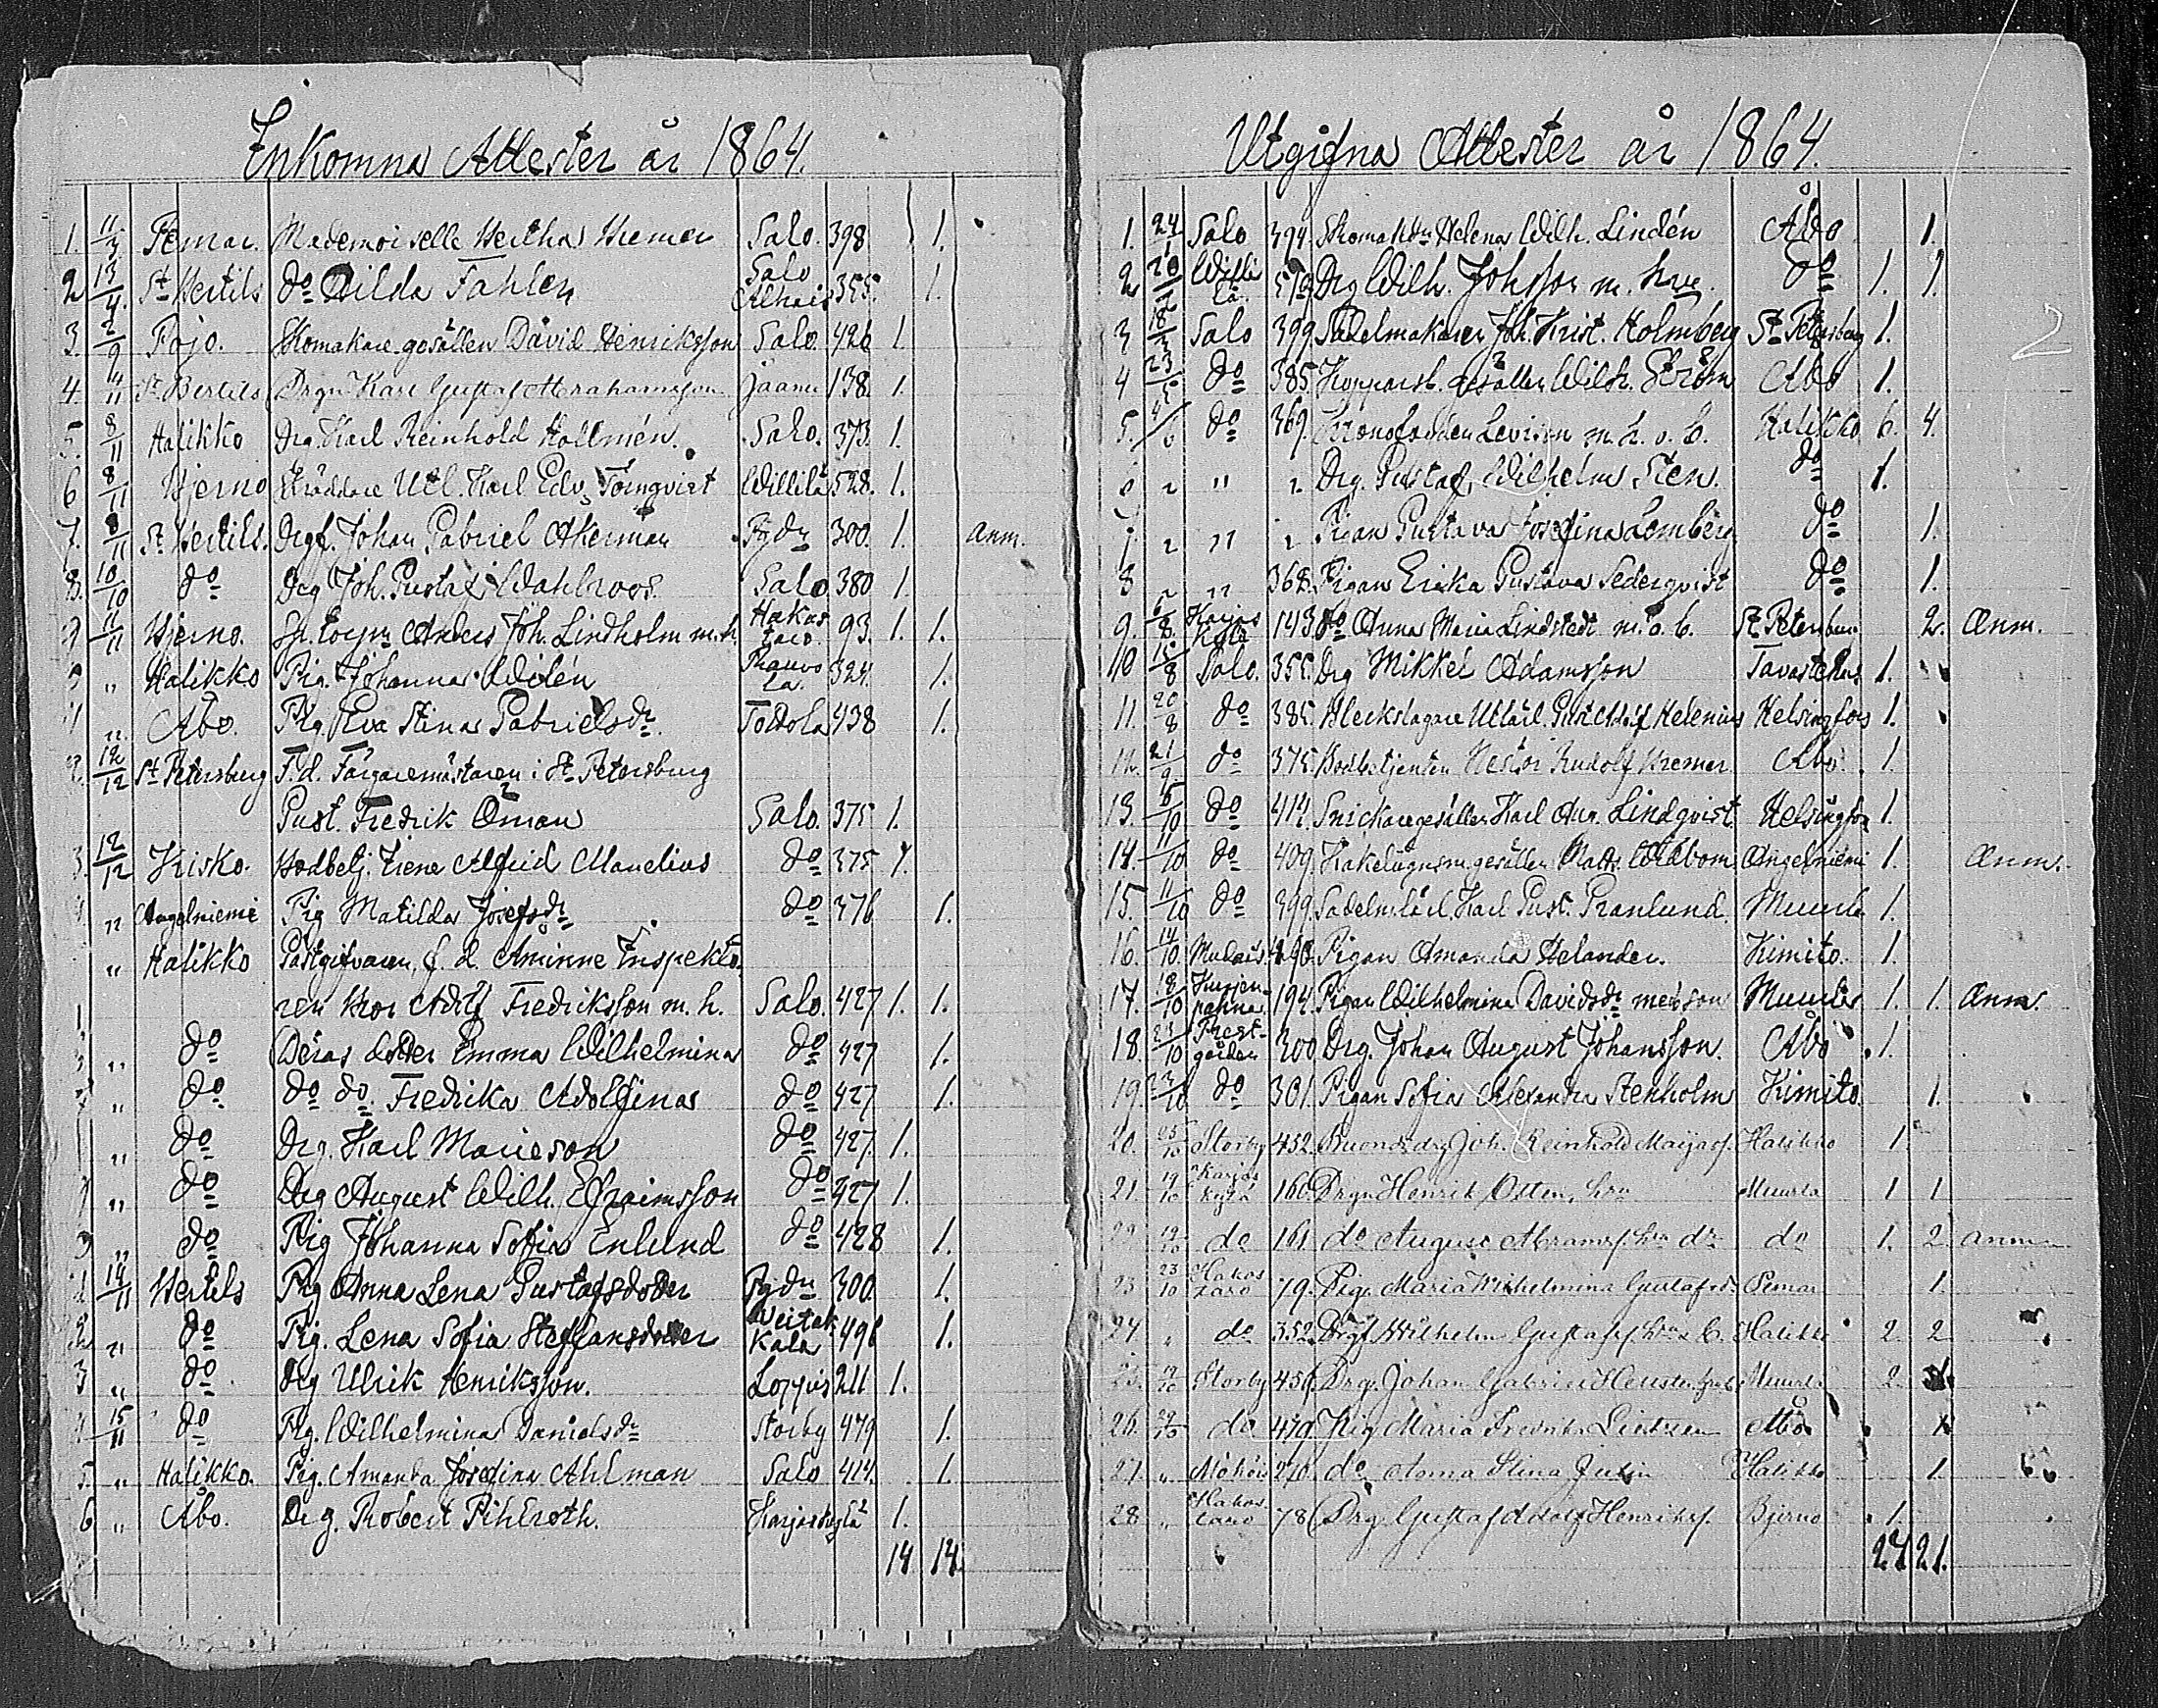 Inkomna Attester år 1864.
1. 11/3 Pemar. Mademoiselle Bertha Bremer Salo. 398 1.
2 13/4. St Bertils do Hilda Fahlen Salo 355. 1.
3. 2/9 Pojo. Skomakare gesällen David Henriksson Salo. 426 1.
4. 4/11 St Bertils Drgn Karl Gustaf Abrahamsson 138. 1.
5. 8/11 Halikko Drg. Karl Reinhold Hallmén. Salo. 373. 1.
6 8/11 Bjerno Skräddare Karl Edv. Törnqvist Willilä 528. 1.
7. 8/11 St Bertils. Johan Gabriel Åkerman 300. 1. Anm.
8. 10/10 do Drg Joh. Gustaf Wahlroos. Salo 380 1.
9 11/11 Bjerno. Anders Joh. Lindholm m. h. Hakostaro. 93. 1. 1.
" Halikko Pig. Johanna Widén 324. 1.
" Åbo. Pig. Eva Stina Gabrielsdr. 438 1.
12/12 St Petersburg F. d. Färgaremästaren i St Petersburg
Gust. Fredrik Öman Salo. 375 1.
3. 12/12 Kisko. Alfrid Manelius do 375 1.
" Angelniemi Pig Matilda Josefsdr do 376 1.
" Halikko Gästgifvaren, f. d. Åminne Inspekto-
ren Adolf Fredriksson m. h. Salo. 427 1. 1.
" do Deras dotter Emma Wilhelmina do 427 1.
" do do do. Fredrika Adolfina do 427 1.
" do Drg. Karl Marieson do 427. 1.
" do Drg August Wilh. Efraimsson do 427 1.
" do Pig Johanna Sofia Enlund do 428 1.
14/11 Bertils Pig Anna Lena Gustafsdotter 300. 1.
" do Pig. Lena Sofia Steffansdotter 496 1.
3 " do Drg Ulrik Henriksson. 211 1.
15/11 do Pig. Wilhelmina Danielsdr Storby 479 1.
5. " Halikko. Pig. Amanda Josefina Ahlman Salo 414. 1.
6 " Åbo. Drg. Robert Pihlroth. Karjaskylä 1.
14 14.
Utgifna Attester år 1864.
1. 24/1 Salo 394. Helena Wilh. Lindén Åbo 1.
2 Willilä. Drg Wilh. Johsson m. hru. do 1. 1.
3 18/3 Salo 399 Sadelmakaren Joh. Krist. Holmberg St Petersburg 1.
4 23/5 do 385. gesällen Wilh. Ström Åbo 1.
5. 4/6 do 369. m. h. o. b. Halikko 6. 4.
" Drg. Gustaf Wilhelm Sten. do 1.
" Pigan Gustava Josefina Lomberg do 1.
8 " 368. Pigan Erika Gustava Sederqvist do 1.
9. 6/8 Karjaskylä 143 do Anna Maria Lindstedt m. o. b. St Petersburg 2. Anm.
10 15/8 Salo. 355. Drg Mikkel Adamsson Tavastehus 1.
11. 20/8 do 385. Bleckslagare Helenius Helsingfors 1.
12. 21/9. do 375. Bodbetjenten Nestor Rudolf Bremer Åbo. 1.
13. do 414. Snickaregesällen Karl Aug. Lindqvist Helsingfors 1.
14. 11/10 do 409. Kakelugnsm. gesällen Matts Widbom Angelniemi 1. Anm.
15. 11/10 do 399 Karl Gust. Granlund. Muurla 1.
16. 14/10 Pigan Amanda Helander. Kimito. 1.
17. 18/10 194. Pigan Wilhelmina Davidsdr med son Muurla 1. 1. Anm.
18. 23/10 Prest-gården 300. Drg. Johan August Johansson. Åbo 1.
19. 23/10 do 301 Pigan Sofia Alexandra Stenholm Kimito. 1.
20. Storby 452 Joh. Reinhold Halikko 1.
21. 19/10 Karjaskylä 160. Drgn Henrik Osten, hru Muurla 1 1
22 19/10 do 161. do August do 1. 2 anm
23 23/10 Hakostaro 79. Pig. Maria Wilhelmina Gustafsd. Pemar 1.
24 " do 352. Wilhelm Gustafss. Halikko 2. 2
25. Storby Drg. Johan Gabriel Muurla 2.
26. do 479. Pig Maria Fredrika Åbo
27. " do Anna Stina Halikko 1.
28 " Hakostaro 78 Drg. Gustaf Adolf Henrikss. Bjerno 1.
27 21.
2